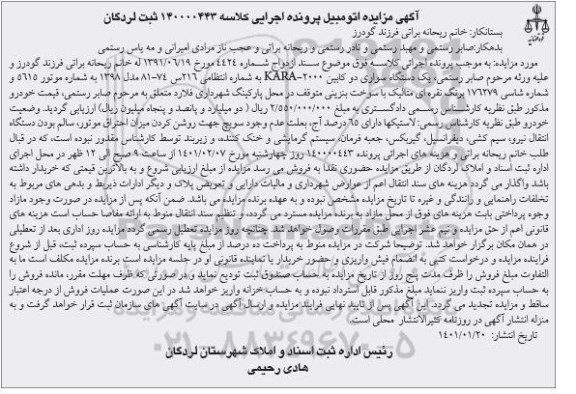 آگهی مزایده اتومبیل پرونده اجرایی کلاسه ۱۴۰۰۰۰۴۴۳ ثبت لردگان
بستانکار: خانم ریحانه براتی فرزند گودرز
بدهکار:صابر رستمی و مهبد رستمی و نادر رستمی و ریحانه براتی و عجب ناز مرادی امیرانی و مه یاس رستمی
مورد مزایده: به موجب پرونده اجرائی کلاسه فوق موضوع سند ازدواج شماره ۴۴۲۴ مورخ ۱۳۹۱/۰۶/۱۹ له خانم ریحانه براتی فرزند گودرز و
علیه ورثه مرحوم صابر رستمی، یک دستگاه سواری دو کابین KARA-۲۰۰۰ به شماره انتظامی ۲۱۶س ۷۴-۸۱ مدل ۱۳۹۸ به شماره موتور ۵۶۱۵ و
شماره شاسی ۱۷۶۲۷۹ برنگ نقره ای متالیک با سوخت بنزینی متوقف در محل پارکینگ شهرداری فلارد متعلق به مرحوم صابر رستمی، قیمت خودرو
مذکور طبق نظریه کارشناس رسمی دادگستری به مبلغ ۲/۵۵۰/۰۰۰/۰۰۰ ریال ( دو میلیارد و پانصد و پنجاه میلیون ریال) ارزیابی گردید. وضعیت
خودرو طبق نظریه کارشناس رسمی:-لاستیکها دارای ۶۵ درصد آج، بعلت عدم وجود سویچ جهت روشن کردن میزان احتراق موتور، سالم بودن دستگاه
انتقال نیرو، سیم کشی، دیفرانسیل، گیربکس، جعبه فرمان، سیستم گرمایشی و خنک کننده، و زیربند توسط کارشناس مقدور نبوده است، که در قبال
طلب خانم ریحانه براتی و هزینه های اجرائی پرونده ۱۴۰۰۰۰۴۴۳ روز چهارشنبه مورخ ۱۴۰۱/۰۲/۰۷ از ساعت ۹ صبح الی ۱۲ ظهر در محل اجرای
اداره ثبت اسناد و املاک لردگان از طریق مزایده حضوری نقدا به فروش می رسد مزایده از مبلغ ارزیابی شروع و به بالاترین قیمتی که خریدار داشته
باشد واگذار می گردد هزینه های سند انتقال اعم از عوارض شهرداری و مالیات دارایی و تعویض پلاک و دیگر ادارات ذیربط و بدهی های مربوط به
تخلفات راهنمایی و رانندگی و غیره تا تاریخ مزایده مشخص نبوده و به عهده برنده مزایده می باشد. ضمن آنکه پس از مزایده در صورت وجود مازاد
وجوه پرداختی بابت هزینه های فوق از محل مازاد به برنده مزایده مسترد می گردد، و تنظیم سند انتقال منوط به ارائه مفاصا حساب است هزینه های
قانونی اعم از حق مزایده و نیم عشر اجرایی طبق مقررات وصول خواهد شد چنانچه روز مزایده تعطیل رسمی گردد مزایده روز اداری بعد از تعطیلی
در همان مکان برگزار خواهد شد. توضیحا شرکت در مزایده منوط به پرداخت ده درصد از مبلغ پایه کارشناسی به حساب سپرده ثبت، قبل از شروع
فرآینده مزایده و درخواست کتبی به انضمام فیش واریزی و حضور خریدار یا نماینده قانونی او در جلسه مزایده است برنده مزایده مکلف است ما به
التفاوت مبلغ فروش را ظرف مدت پنج روز از تاریخ مزایده به حساب صندوق ثبت تودیع نماید و در صورتی که ظرف مهلت مقرر، مانده فروش را
به حساب سپرده ثبت واریز ننماید مبلغ مذکور قابل استرداد نبوده و به حساب خزانه واریز خواهد شد در این صورت عملیات فروش از درجه اعتبار
ساقط و مزایده تجدید می گردد. این آگهی پس از تایید نهایی فرایند مزایده و ارسال آگهی در سایت آگهی های سازمان ثبت قرار خواهد گرفت و به
منزله انتشار آگهی در روزنامه کثیرالانتشار محلی است.
تاریخ انتشار: ۱۴۰۱/۰۱/۲۰
رئیس اداره ثبت اسناد و املاک شهرستان لردگان
هادی رحیمی
۰۲۱-۸۸۳۴۹۶۷۰-۵